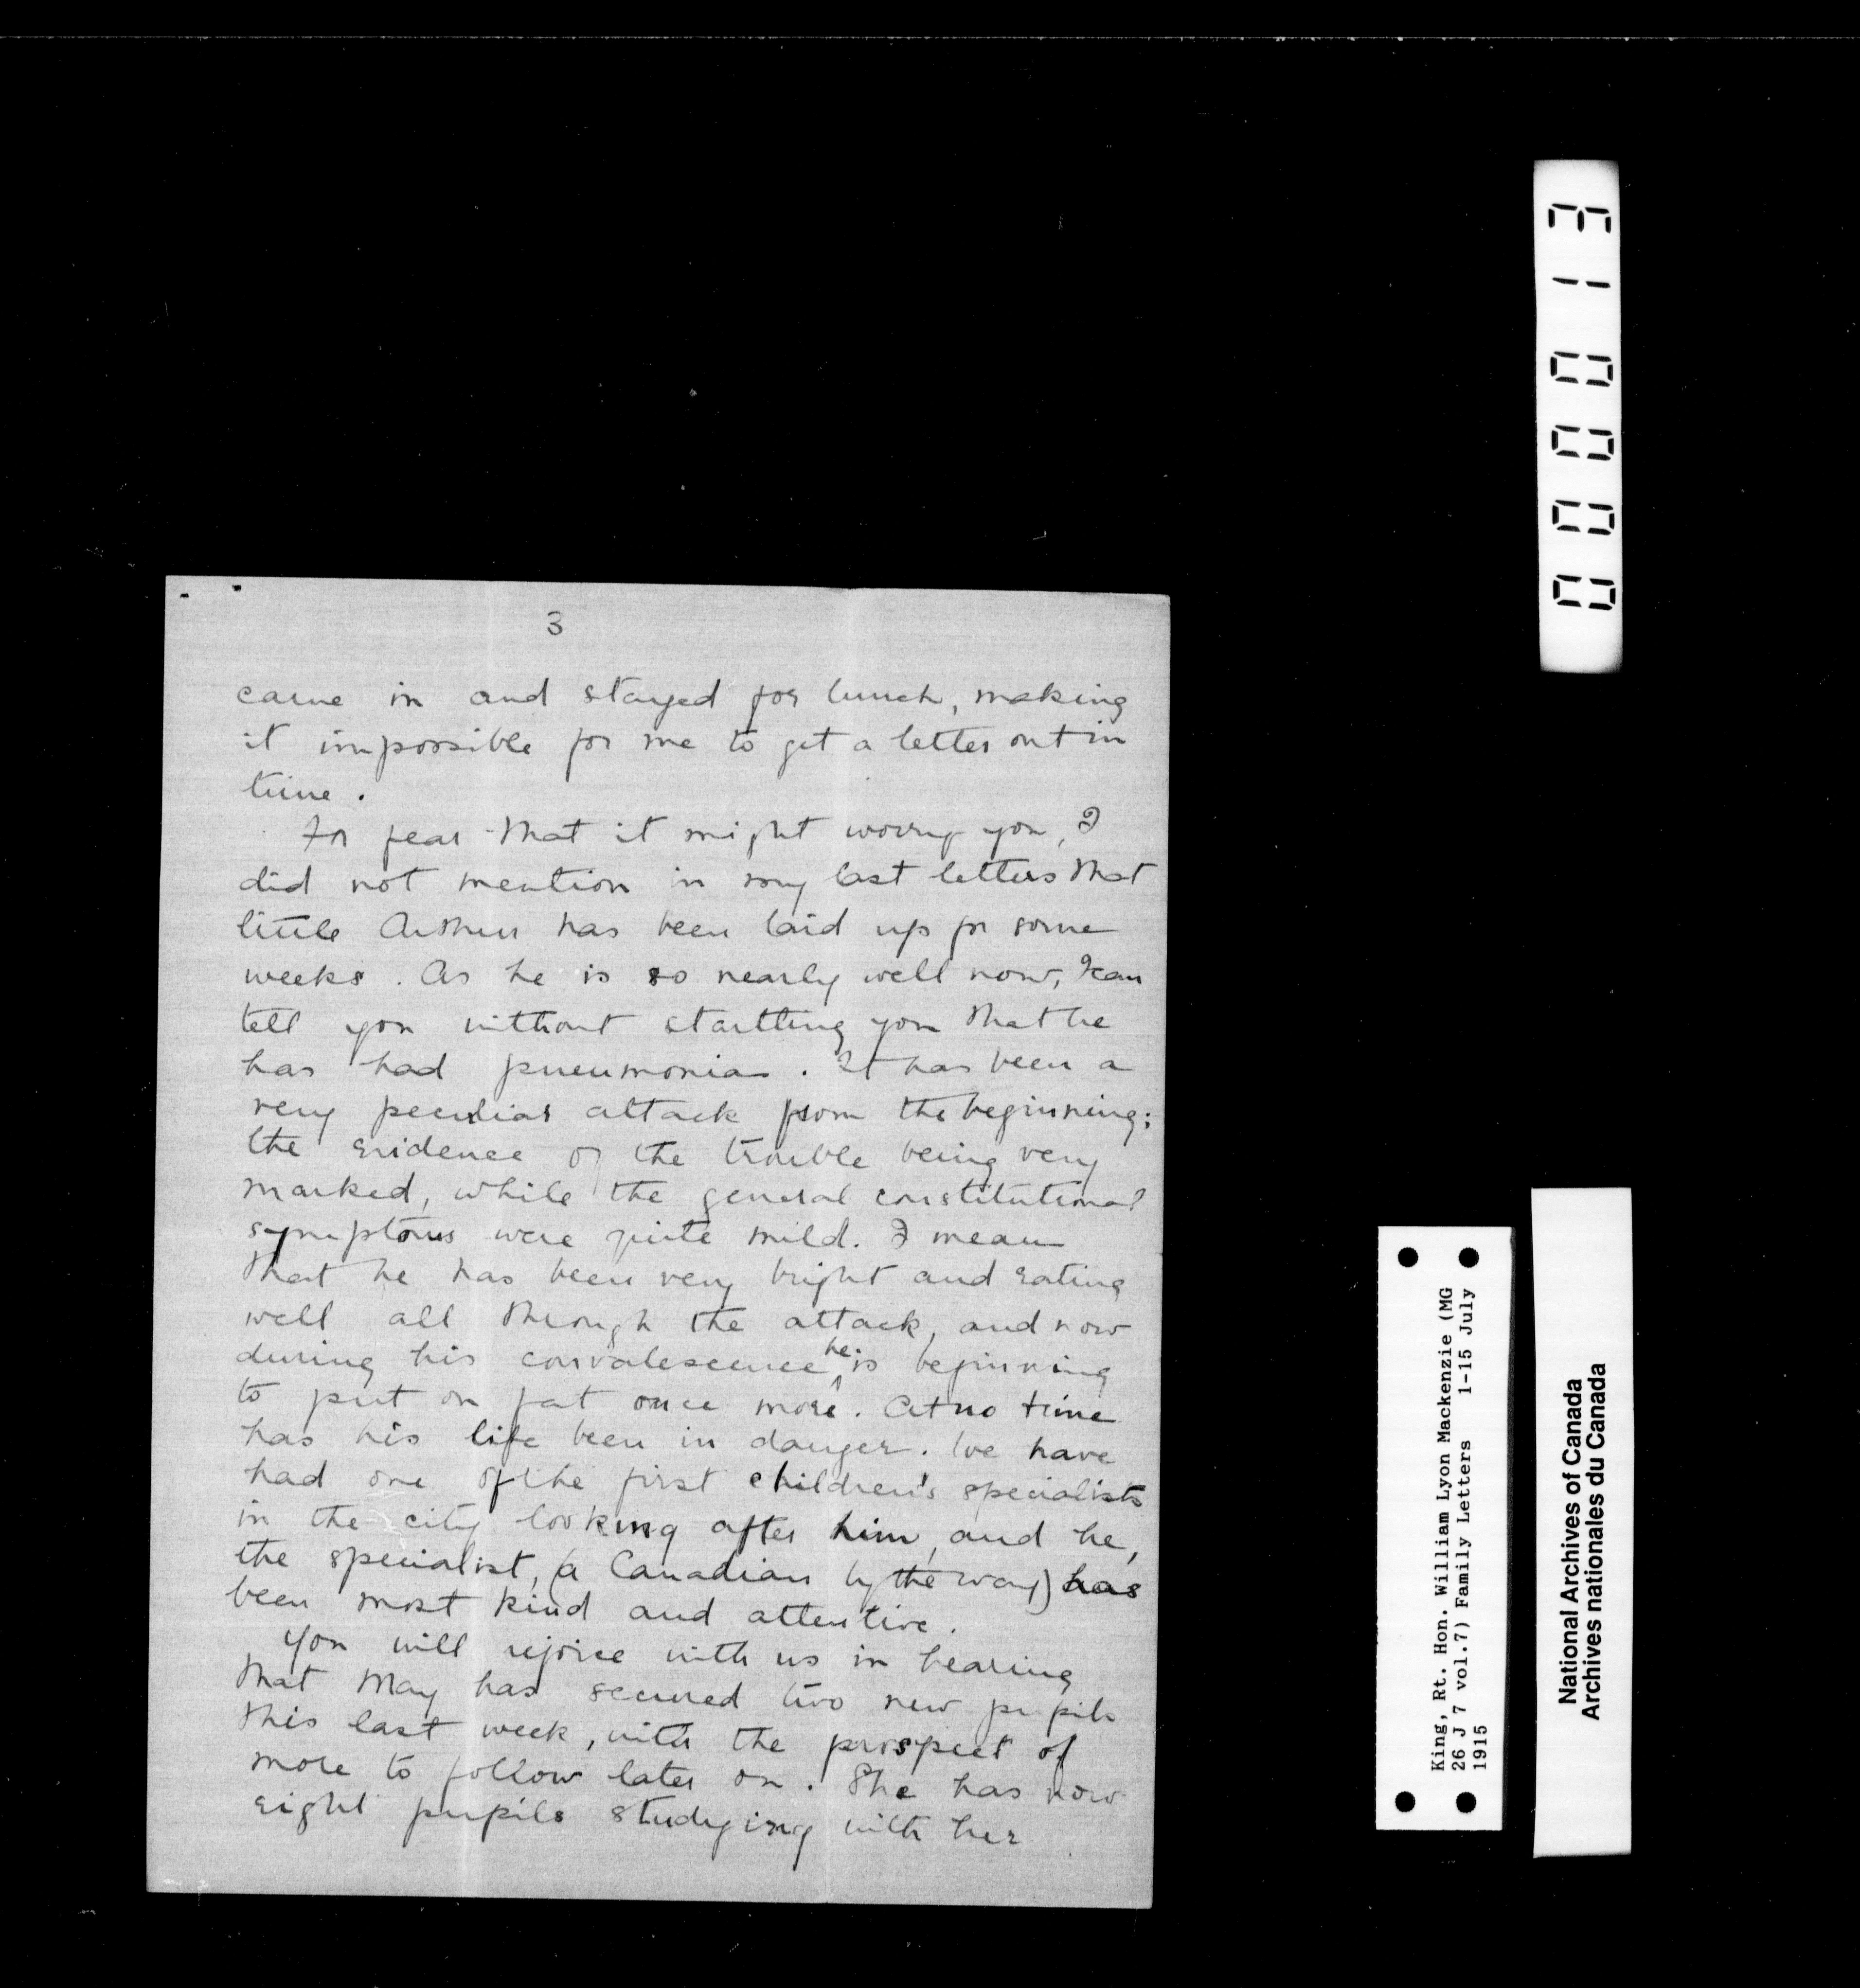 3
came in and stayed for lunch, making
it impossible for me to get a letter out in
time.
For fear that it might worry you, I
did not mention in my last letters that
little Arthur has been laid up for some
weeks. As he is so nearly well now, I can
tell you without startling you that he
has had pneumonia. It has been a
very peculiar attack from the beginning;
the evidence of the trouble being very
marked, while the general constitutional
symptoms were quite mild. I mean
that he has been very bright and eating
well all through the attack, and now
during his convalescence he is beginning
to put on fat once more. At no time
has his life been in danger. We have
had one of the first children's specialists
in the city looking after him, and he,
the specialist, (a Canadian by the way) has
been most kind and attentive.
You will rejoice with us in hearing
that May has secured two new pupils
this last week, with the prospect of
more to follow later on. She has now
eight pupils studying with her
000013
King, Rt. Hon. William Lyon Mackenzie (MG
26 J 7 vol.7) Family Letters 1-15 July
1915
National Archives of Canada
Archives nationales du Canada